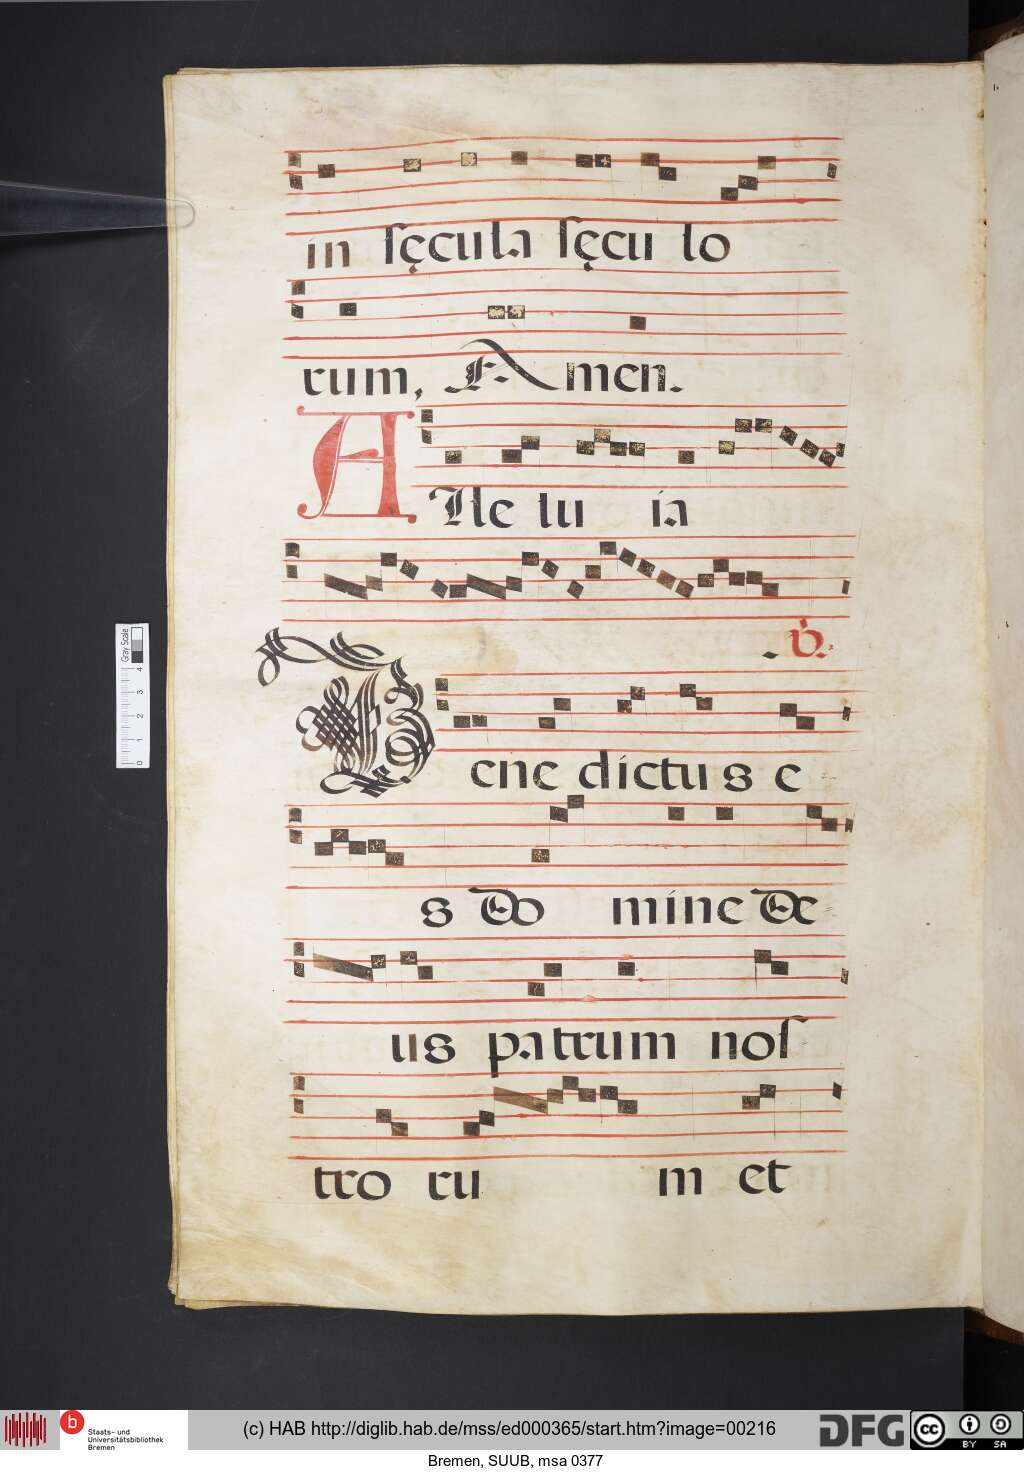 in ſęcula ſęcu lo
rum, Amen.
Alle lu ia
℣.
Bene dictus e
s Do mine De
us patrum noſ
tro ru m et
Gray Scale
4 3 2 1 0
b Staats- und
Universitätsbibliothek
Bremen
(c) HAB http://diglib.hab.de/mss/ed000365/start.htm?image=00216
DFG
cc BY SA
Bremen, SUUB, msa 0377